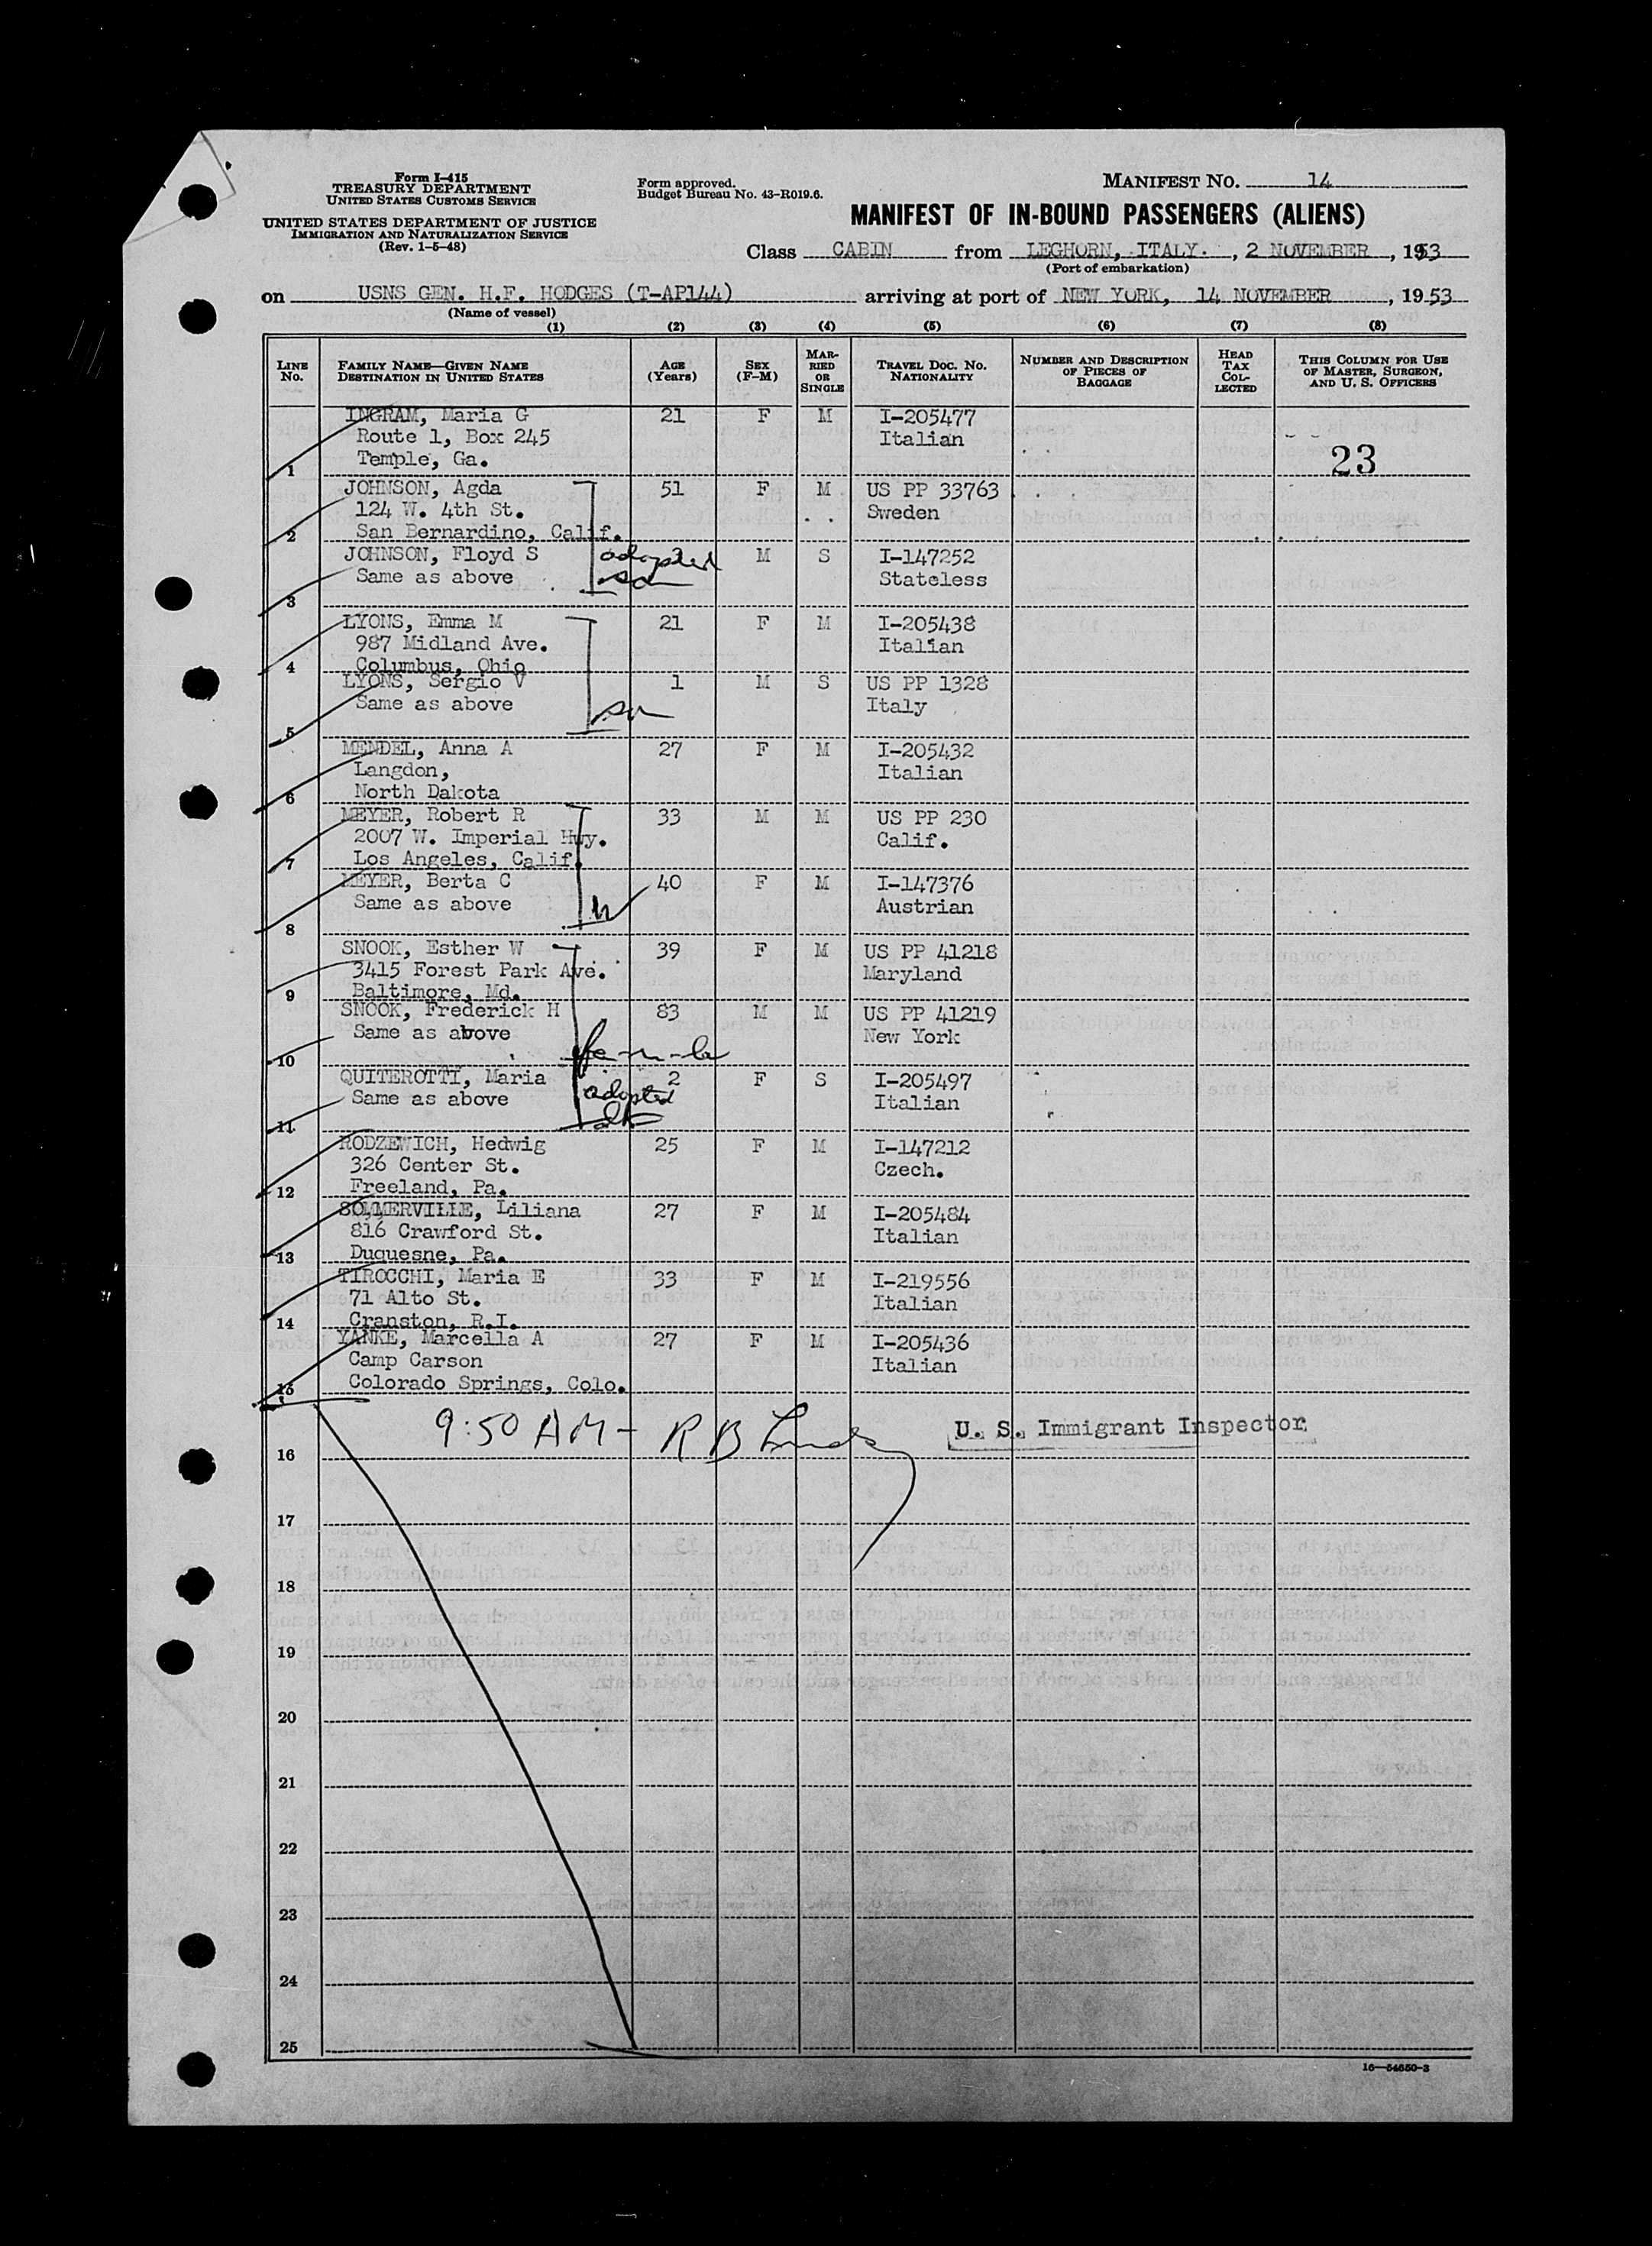 Form I-415
TREASURY DEPARTMENT
UNITED STATES CUSTOMS SERVICE
UNITED STATES DEPARTMENT OF JUSTICE
IMMIGRATION AND NATURALIZATION SERVICE
(Rev. 1-5-48)
Form approved.
Budget Bureau No. 43-R019.6.
MANIFEST NO. 14
MANIFEST OF IN-BOUND PASSENGERS (ALIENS)
Class CABIN from LEGHORN, ITALY. , 2 NOVEMBER , 1953
(Port of embarkation)
on USNS GEN. H.F. HODGES (T-AP144) arriving at port of NEW YORK, 14 NOVEMBER , 1953
(Name of vessel)
(1) (2) (3) (4) (5) (6) (7) (8)
LINE No. FAMILY NAME—GIVEN NAME DESTINATION IN UNITED STATES AGE (Years) SEX (F-M) MARRIED OR SINGLE TRAVEL DOC. NO. NATIONALITY NUMBER AND DESCRIPTION OF PIECES OF BAGGAGE HEAD TAX COLLECTED THIS COLUMN FOR USE OF MASTER, SURGEON, AND U. S. OFFICERS
INGRAM, Maria G 21 F M I-205477
Route 1, Box 245 Italian
1 Temple, Ga. 23
JOHNSON, Agda 51 F M US PP 33763
124 W. 4th St. Sweden
2 San Bernardino, Calif.
JOHNSON, Floyd S adopted M S I-147252
Same as above son Stateless
3
LYONS, Emma M 21 F M I-205438
987 Midland Ave. Italian
4 Columbus, Ohio
LYONS, Sergio V 1 M S US PP 1328
Same as above son Italy
5
MENDEL, Anna A 27 F M I-205432
Langdon, Italian
6 North Dakota
MEYER, Robert R 33 M M US PP 230
2007 W. Imperial Hwy. Calif.
7 Los Angeles, Calif.
MEYER, Berta C 40 F M I-147376
Same as above Austrian
8
SNOOK, Esther W 39 F M US PP 41218
3415 Forest Park Ave. Maryland
9 Baltimore, Md.
SNOOK, Frederick H 83 M M US PP 41219
Same as above New York
10
QUITEROTTI, Maria 2 F S I-205497
Same as above adopted Italian
11
RODZEWICH, Hedwig 25 F M I-147212
326 Center St. Czech.
12 Freeland, Pa.
SOMMERVILLE, Liliana 27 F M I-205484
816 Crawford St. Italian
13 Duquesne, Pa.
TIROCCHI, Maria E 33 F M I-219556
71 Alto St. Italian
14 Cranston, R.I.
YANKE, Marcella A 27 F M I-205436
Camp Carson Italian
15 Colorado Springs, Colo.
9:50 AM - R B U. S. Immigrant Inspector
16
17
18
19
20
21
22
23
24
25
16—54650-3